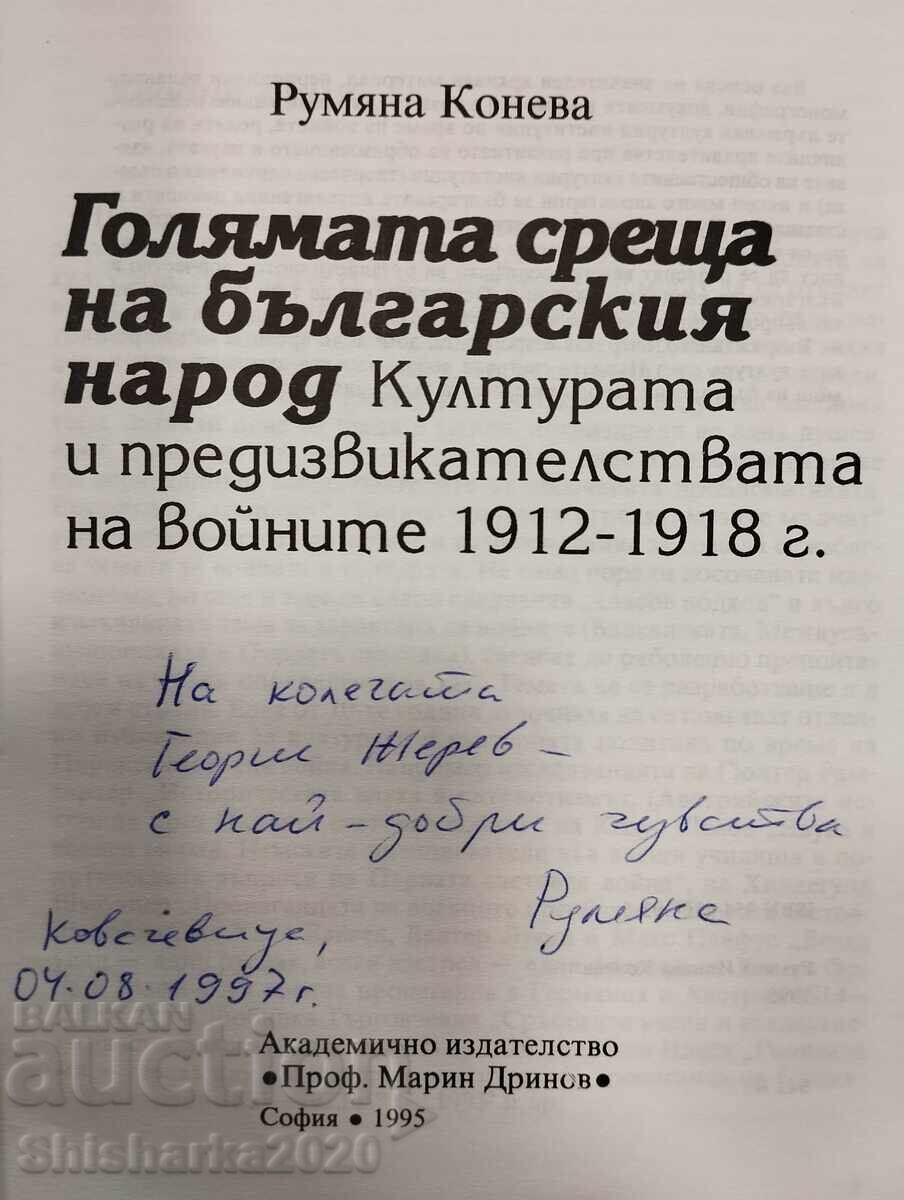 Румяна Конева
Голямата среща
на българския
народ Културата
и предизвикателствата
на войните 1912-1918 г.
На колегата
Георги Жерев –
с най-добри чувства
Румяна
Ковачевица,
04.08.1997 г.
Академично издателство
•Проф. Марин Дринов•
София • 1995
BALKAN
auction
Shisharka2020